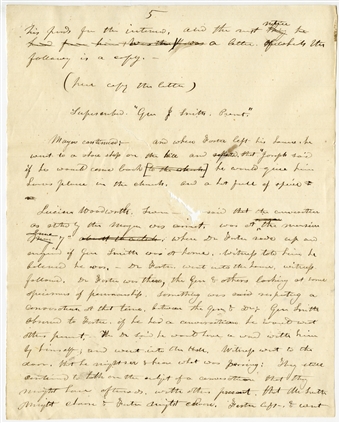 5
his friends for the interview, and the next notice he
a letter, of which the
following is a copy. —
(here copy the letter)
Superscribed. "Gen J. Smith. Present."
Mayor continued; — and when Foster left his house, he
went to a shoe shop on the hill and reported, that "Joseph said
if he would come back he would give him
Hyrum's place in the church, and a hat full of specie. —
Lucien Woodworth, Sworn — said that the conversation
as stated by the Mayor was correct, was at the mansion
June 7th, when Dr Foster rode up and
enquired if Gen Smith was at home. Witness told him he
believed he was, — Dr Foster went into the house, witness
followed. Dr Foster was there, the Gen & others looking at some
specimens of penmanship. Something was said respecting a
conversation at that time, between the Gen & Dr. Gen Smith
observed to Foster, if he had a conversation he should want
others present. The Dr said he would have a word with him
by himself, and went into the Hall. Witness went to the
door, that he might see & hear what was passing. They still
continued to talk on the subject of a conversation that they
might have afterwards, with others present, that Mr Smith
might choose & Foster might choose. Foster left, & went